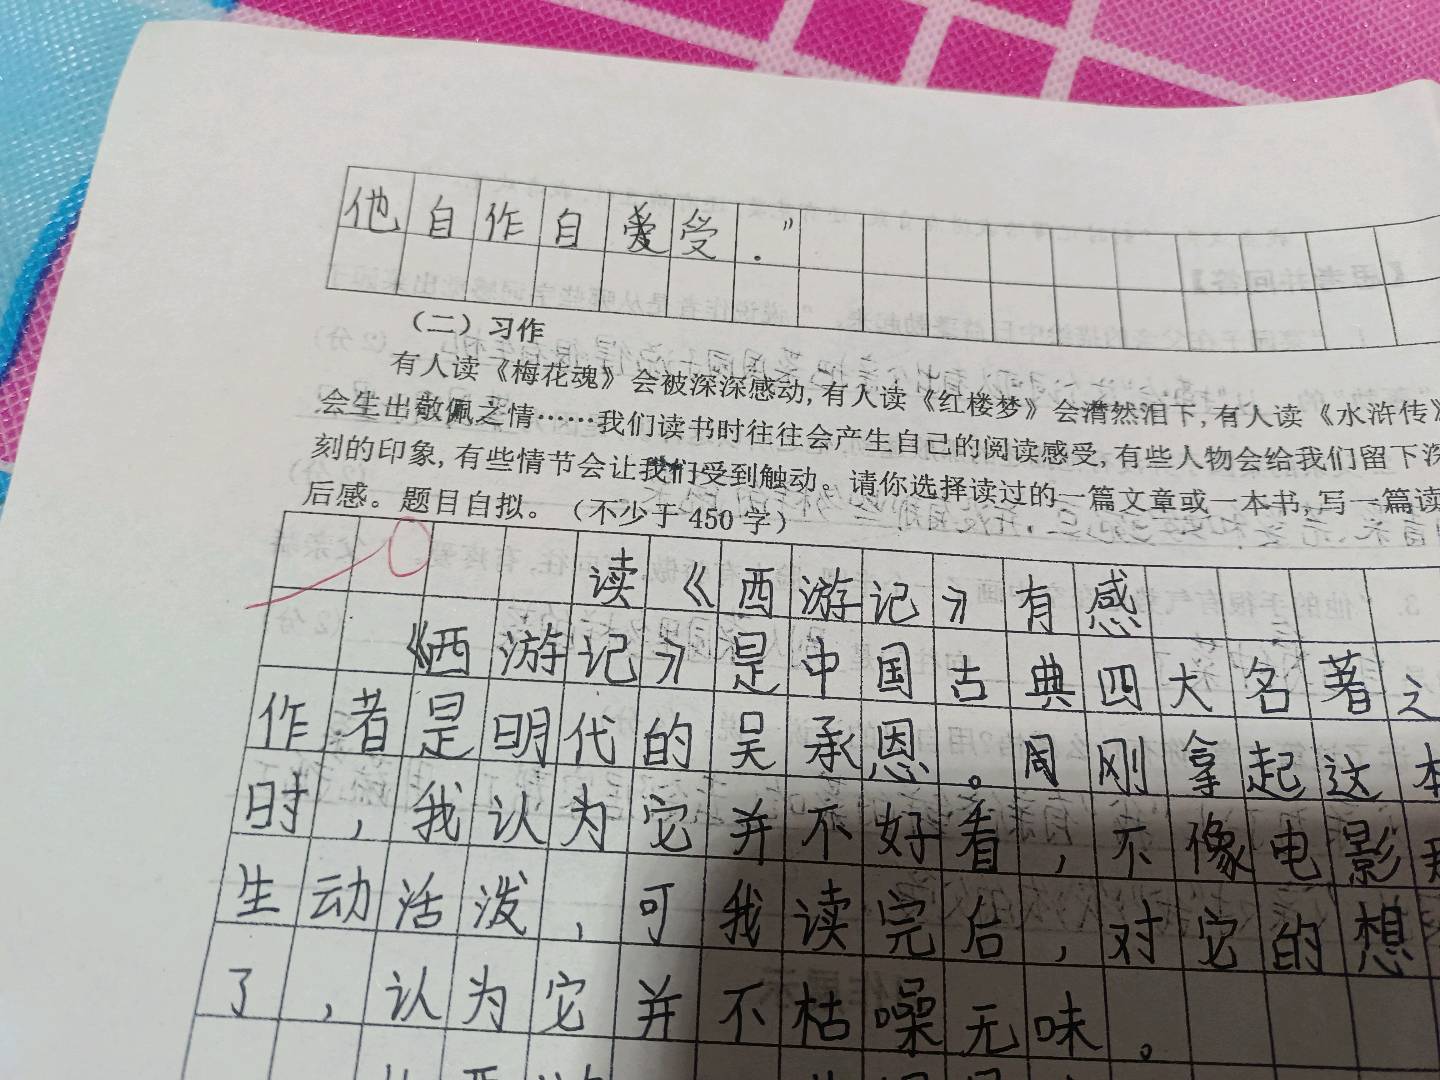 他自作自受."
（二）习作
有人读《梅花魂》会被深深感动,有人读《红楼梦》会潸然泪下,有人读《水浒传》
会生出敬佩之情……我们读书时往往会产生自己的阅读感受,有些人物会给我们留下深
刻的印象,有些情节会让我们受到触动。请你选择读过的一篇文章或一本书,写一篇读
后感。题目自拟。（不少于450字）
读《西游记》有感
《西游记》是中国古典四大名著之
作者是明代的吴承恩。周刚拿起这本
时，我认为它并不好看，不像电影
生动活泼，可我读完后，对它的想
了，认为它并不枯噪无味。